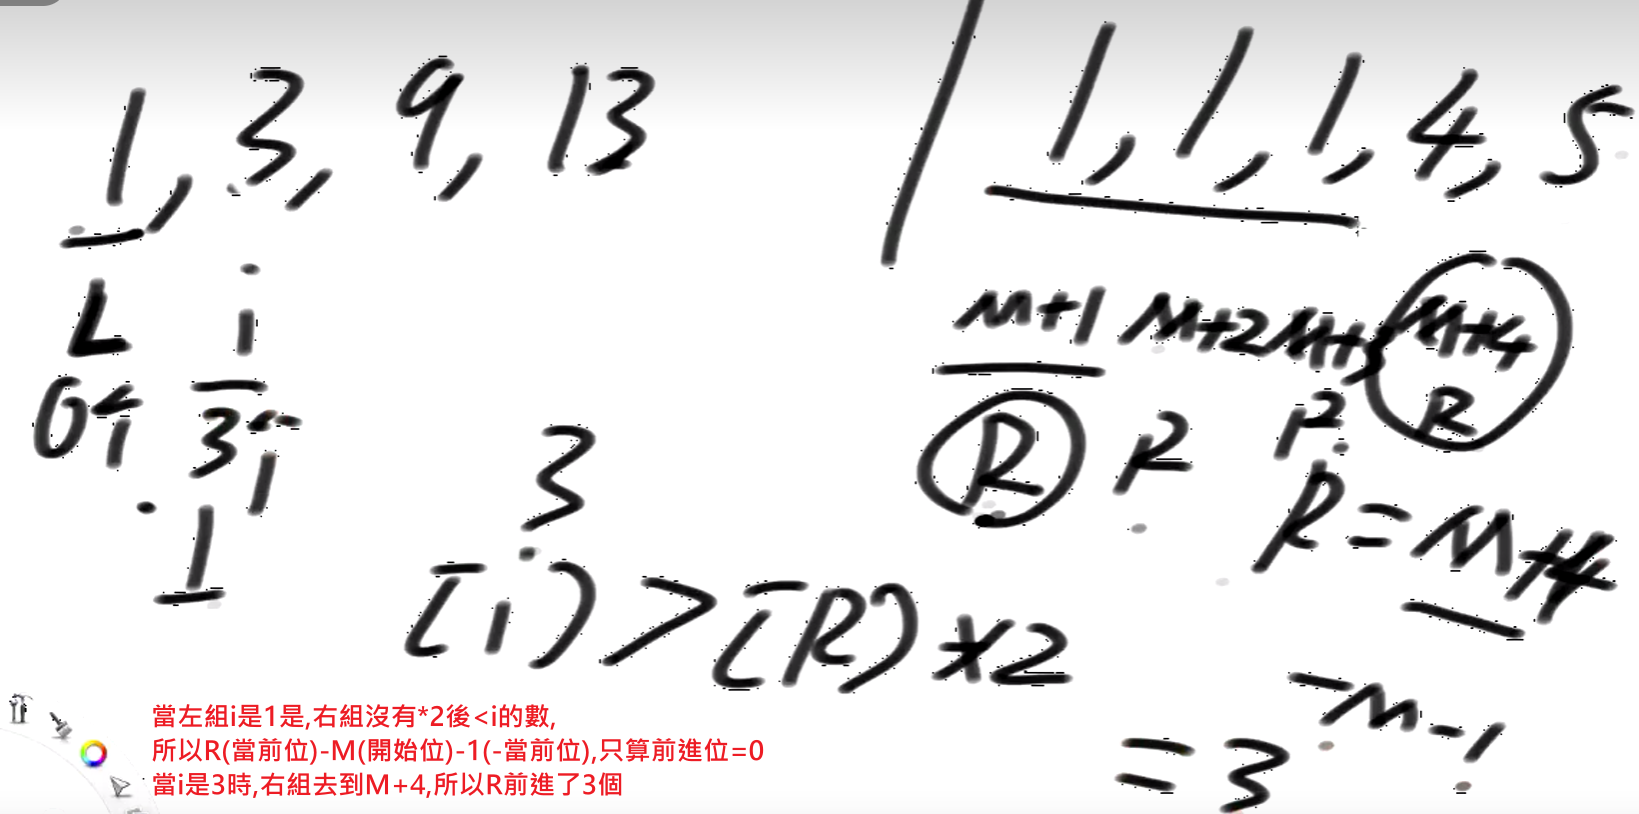 1, 3, 9, 13 | 1, 1, 1, 4, 5
L i M+1 M+2 M+3 M+4
0个 3个 R R R R
1 1
3 R=M+4
[i] > [R] * 2
-M-1
=3
當左組i是1是,右組沒有*2後<i的數,
所以R(當前位)-M(開始位)-1(-當前位),只算前進位=0
當i是3時,右組去到M+4,所以R前進了3個